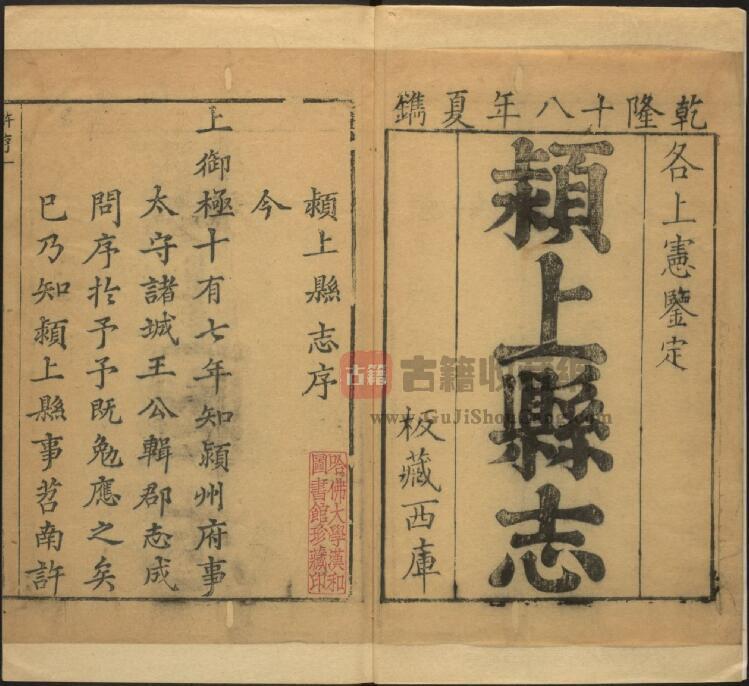 乾隆十八年夏鐫
各上憲鑒定
潁上縣志
板藏西庫
潁上縣志序
今
上御極十有七年知潁州府事
太守諸城王公輯郡志成
問序於予予既勉應之矣
已乃知潁上縣事苕南許
哈佛大學漢和
圖書館珍藏印
古籍
古籍收
www.GuJiShou